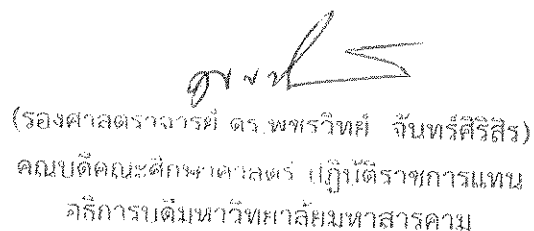 (รองศาสตราจารย์ ดร.พชรวิทย์ จันทร์ศิริสิร)
คณบดีคณะศึกษาศาสตร์ ปฏิบัติราชการแทน
อธิการบดีมหาวิทยาลัยมหาสารคาม